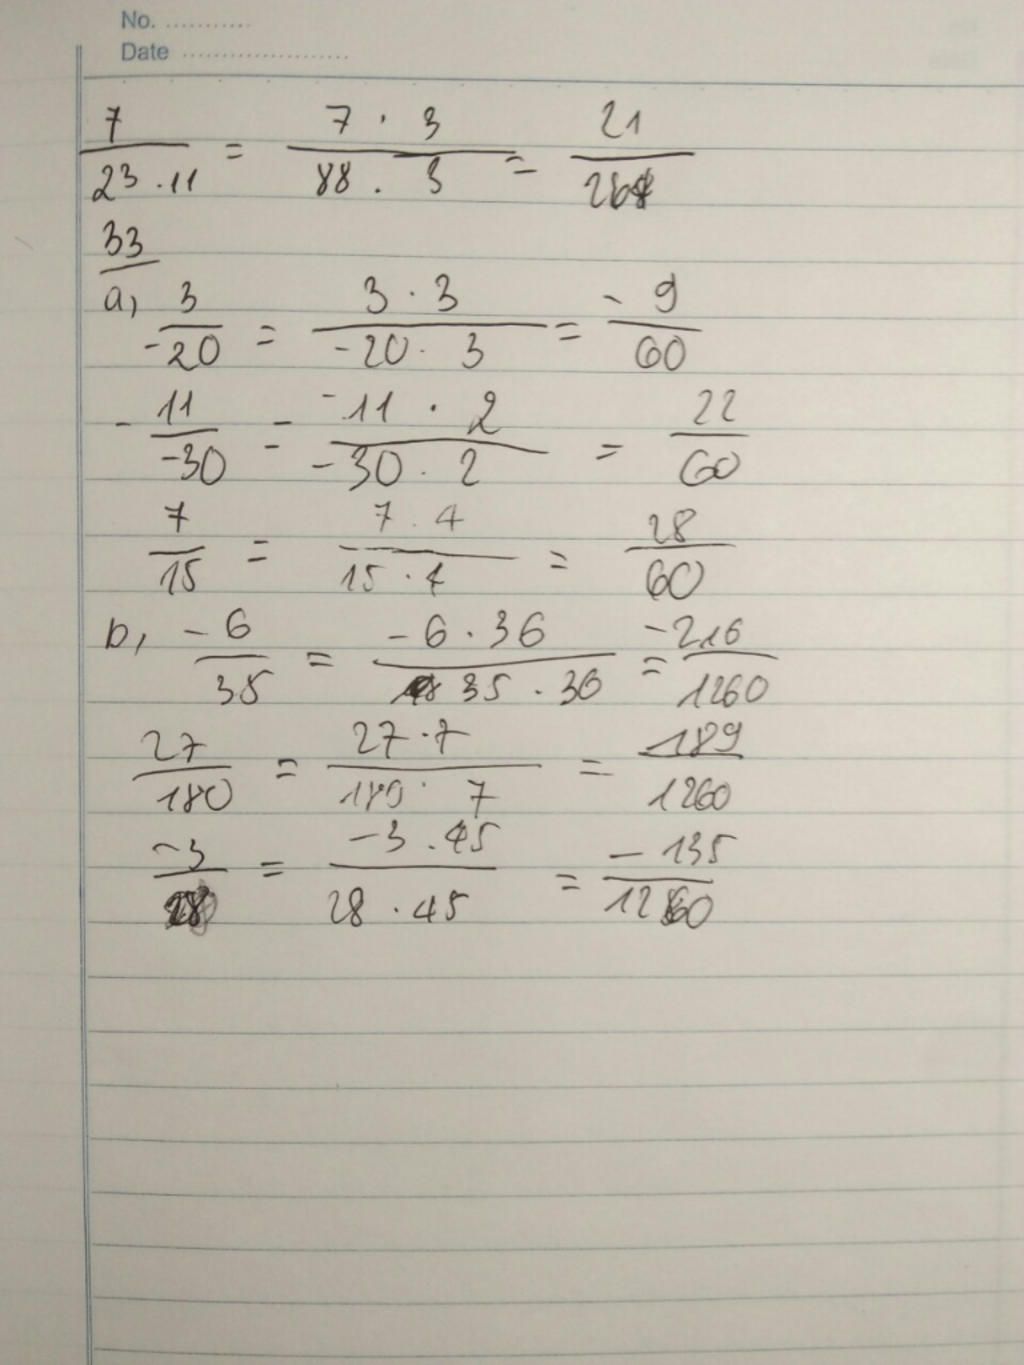 No. ...........
Date ......................
7/23.11 = 7 . 3/88 . 3 = 21/264
33
a, 3/-20 = 3 . 3/-20 . 3 = -9/60
-11/-30 = -11 . 2/-30 . 2 = 22/60
7/15 = 7 . 4/15 . 4 = 28/60
b, -6/35 = -6 . 36/35 . 36 = -216/1260
27/180 = 27 . 7/180 . 7 = 189/1260
-3/28 = -3 . 45/28 . 45 = -135/1260